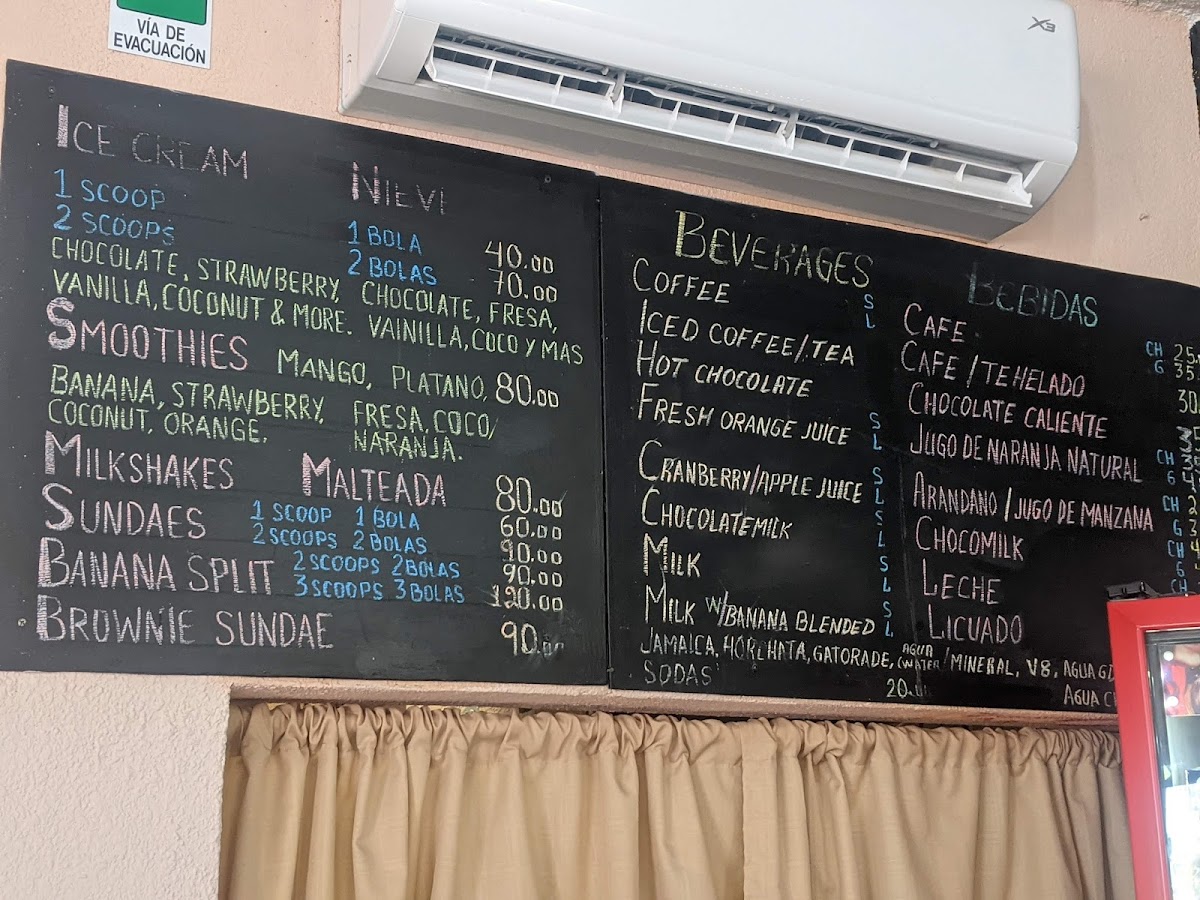 VÍA DE
EVACUACIÓN
X3
ICE CREAM NIEVI
1 SCOOP 1 BOLA 40.00
2 SCOOPS 2 BOLAS 70.00
CHOCOLATE, STRAWBERRY, CHOCOLATE, FRESA,
VANILLA, COCONUT & MORE. VAINILLA, COCO Y MAS
SMOOTHIES MANGO, PLATANO, 80.00
BANANA, STRAWBERRY, FRESA, COCO/
COCONUT, ORANGE. NARANJA.
MILKSHAKES MALTEADA 80.00
SUNDAES 1 SCOOP 1 BOLA 60.00
2 SCOOPS 2 BOLAS 90.00
BANANA SPLIT 2 SCOOPS 2 BOLAS 90.00
3 SCOOPS 3 BOLAS 120.00
BROWNIE SUNDAE 90.00
BEVERAGES BEBIDAS
COFFEE S CAFE CH 25
L G 35
ICED COFFEE/TEA CAFE/TE HELADO 30
HOT CHOCOLATE CHOCOLATE CALIENTE
FRESH ORANGE JUICE S JUGO DE NARANJA NATURAL CH
L G
CRANBERRY/APPLE JUICE S ARANDANO/JUGO DE MANZANA CH
L G
CHOCOLATEMILK S CHOCOMILK CH
L G
MILK S LECHE CH
L
MILK W/BANANA BLENDED S LICUADO
L
JAMAICA, HORCHATA, GATORADE, AGUA (WATER/MINERAL, V8, AGUA
SODAS 20. AGUA